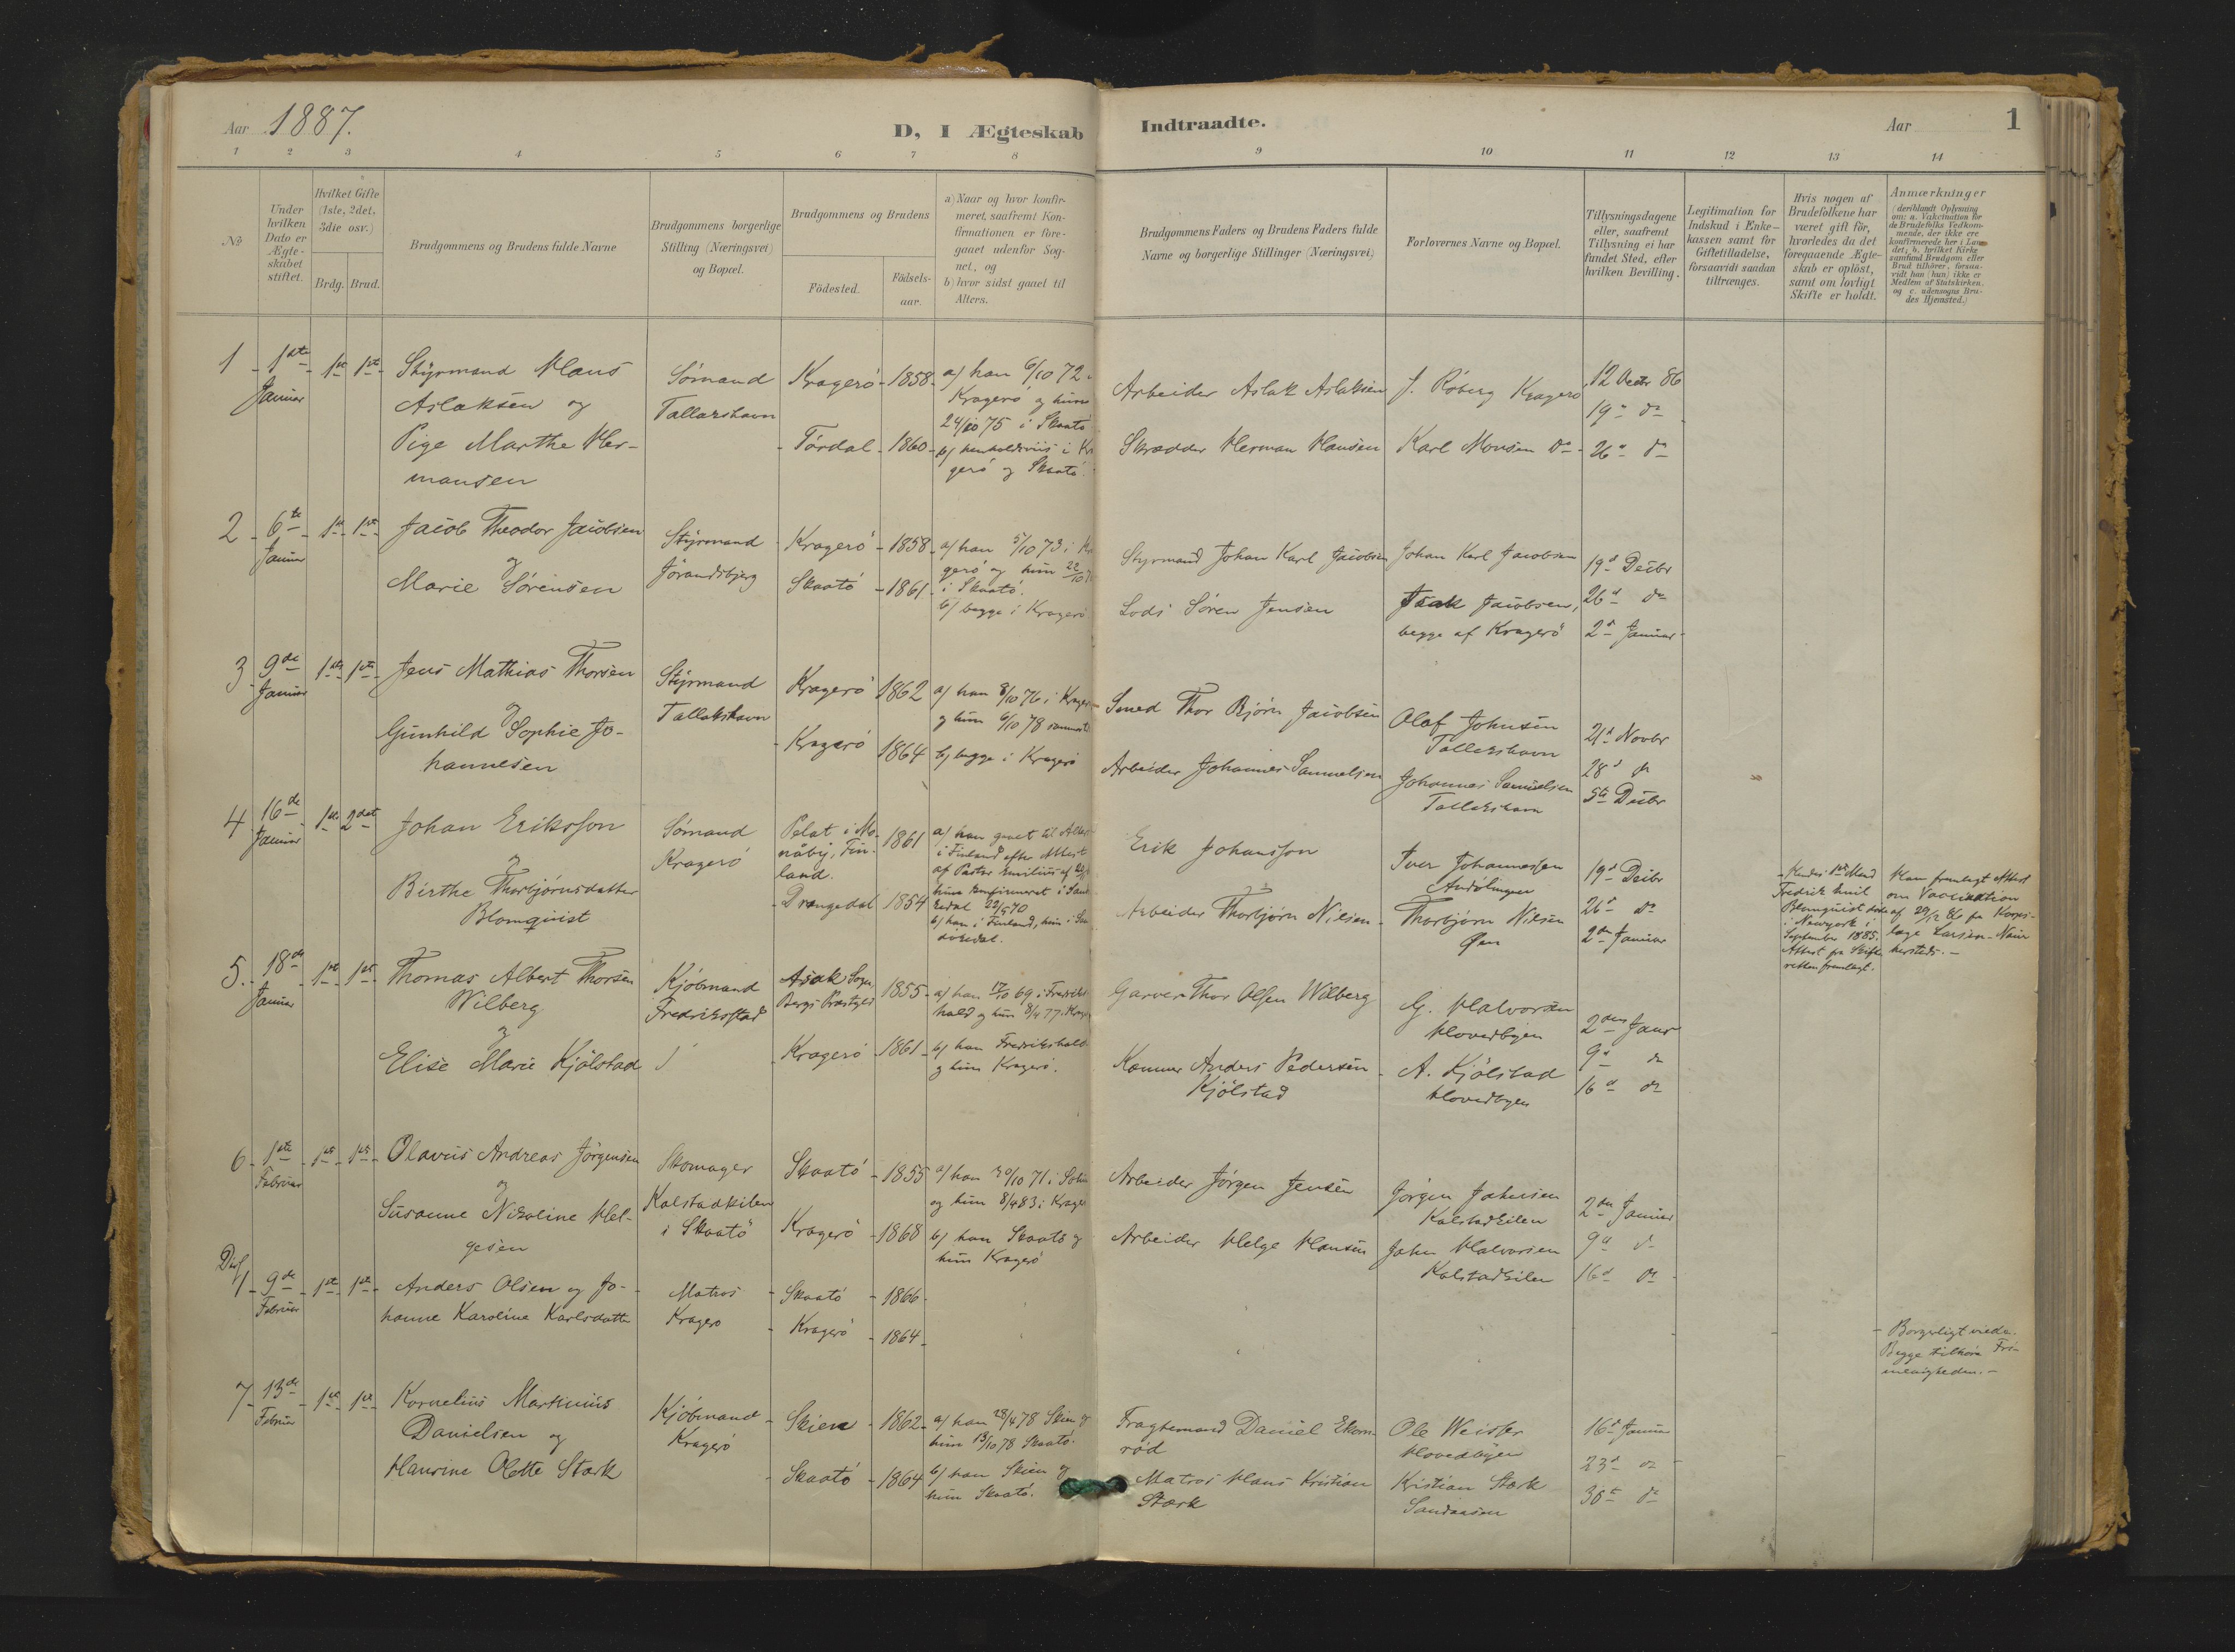 Aar 1887.
D, I Ægteskab Indtraadte.
Aar 1
1 2 3 4 5 6 7 8 9 10 11 12 13 14
No
Under
hvilken
Dato er
Ægte-
skabet
stiftet.
Hvilket Gifte
(1ste, 2det,
3die osv.)
Brdg. Brud.
Brudgommens og Brudens fulde Navne
Brudgommens borgerlige
Stilling (Næringsvei)
og Bopæl.
Brudgommens og Brudens
Födested.
Födsels-
aar.
a) Naar og hvor konfir-
meret, saafremt Kon-
firmationen er fore-
gaaet udenfor Sog-
net, og
b) hvor sidst gaaet til
Alters.
Brudgommens Faders og Brudens Faders fulde
Navne og borgerlige Stillinger (Næringsvei)
Forlovernes Navne og Bopæl.
Tillysningsdagene
eller, saafremt
Tillysning ei har
fundet Sted, efter
hvilken Bevilling.
Legitimation for
Indskud i Enke-
kassen samt for
Giftetilladelse,
forsaavidt saadan
tiltrænges.
Hvis nogen af
Brudefolkene har
været gift för,
hvorledes da det
foregaaende Ægte-
skab er oplöst,
samt om lovligt
Skifte er holdt.
Anmærkninger
(deriblandt Oplysning
om: a. Vakcination for
de Brudefolks Vedkom-
mende, der ikke ere
konfirmerede her i Lan-
det; b. hvilket Kirke
samfund Brudgom eller
Brud tilhörer, forsaa-
vidt han (hun) ikke er
Medlem af Statskirken.
og c. udensogns Bru-
des Hjemsted.)
1 1ste Januar 1ste 1ste
Styrmand Klaus
Aslaksen og
Pige Marthe Her-
mansen
Sömand
Tallakshavn
Kragerö 1858
Tördal 1860
a) han 6/10 72
Kragerö og hun
24/10 75 i Skaatö
b) henholdsvis i Kra
gerö og Skaatö.
Arbeider Aslak Aslaksen
Skrædder Herman Hansen
J. Röberg Kragerö
Karl Monsen do
12 Decbr 86
19d do
26d do
2 6te Januar 1ste 1ste
Jacob Theodor Jacobsen
og
Marie Sörensen
Styrmand
Kragerö 1858
Skaatö 1861
a) han 5/10 73 i Kra
gerö og hun 22/10
i Skaatö.
b) begge i Kragerö
Styrmand Johan Karl Jacobsen
Lods Sören Jensen
Johan Karl Jacobsen
Isak Jacobsen,
begge af Kragerö
19d Decbr
26d do
2d Januar
3 9de Januar 1ste 1ste
Jens Mathias Thorsen
og
Gunhild Sophie Jo-
hannesen
Styrmand
Tallakshavn
Kragerö 1862
Kragerö 1864
a) han 8/10 76 i Krager
og hun 6/10 78 sammest
b) begge i Kragerö
Smed Thor Björn Jacobsen
Arbeider Johannes Samuelsen
Olaf Johnsen
Tallakshavn
Johannes Samuelsen
Tallakshavn
21d Novbr
28d do
5te Decbr
4 16de Januar 1ste 2det
Johan Eriksson
og
Birthe Thorbjörnsdatter
Blomqvist
Sömand
Kragerö
Pelat i Mo-
nåby, Fin-
land. 1861
Drangedal 1854
a) han gaaet til Alters
i Finland efter Attest
af Pastor Emilius af
hun konfirmeret i San
22/5 70
b) han i Finland, hun i San
dökedal.
Erik Johansson
Arbeider Thorbjörn Nilsen
Iver Johannessen
Thorbjörn Nilsen
Öen
19d Decbr
26d do
2den Januar
Hendes 1ste Mand
Fredrik Emil
Blomquist döde
i Newyork i
September 1885.
Attest fra Skifte
retten fremlagt.
Han fremlagt Attest
om Vaccination
af 29/12 86 fra Korps-
læge Larsen
hersteds.
5. 18de Januar 1ste 1ste
Thomas Albert Thorsen
Wilberg
og
Elise Marie Kjölstad
Kjöbmand
Fredriksstad
Asak Sogn,
Bergs Præstegjeld 1855
Kragerö 1861
a) han 17/10 69 i Fredriks
hald og hun 8/4 77 Krag
b) han Fredrikshald
og hun Kragerö.
Garver Thor Olsen Wilberg
Anders Pedersen
Kjölstad
G. Halvorsen
Hovedbyen
A. Kjölstad
Hovedbyen
2den Janr
9d do
16d do
6 1ste Februar 1ste 1ste
Olavus Andreas Jörgensen
og
Susanne Nikoline Hel-
gesen
Skomager
Kalstadkilen
i Skaatö
Skaatö 1855
Kragerö 1868
a) han 30/10 71 i
og hun 8/4 83 i Krager
b) han Skaatö og
hun Kragerö
Arbeider Jörgen Jensen
Arbeider Helge Hansen
Jörgen Johnsen
Kalstadkilen
John Halvorsen
Kalstadkilen
2den Januar
9d do
16d do
Diss
1 9de Februar 1ste 1ste
Anders Olsen og Jo-
hanne Karoline Karlsdatter
Matros
Kragerö
Skaatö 1866
Kragerö 1864
Borgerligt viede.
Begge tilhöre Fri-
menigheden.
7 13de Februar 1ste 1ste
Kornelius Markunius
Danielsen og
Haurine Olette Stærk
Kjöbmand
Kragerö
Skien 1862
Skaatö 1864
a) han 28/4 78 Skien og
hun 13/10 78 Skaatö.
b) han Skien og
hun Skaatö.
Fragtemand Daniel Ekorn-
röd
Matros Hans Kristian
Stærk
Ole Weisser
Hovedbyen
Kristian Stærk
Sandaasen
16d Januar
23d do
30te do